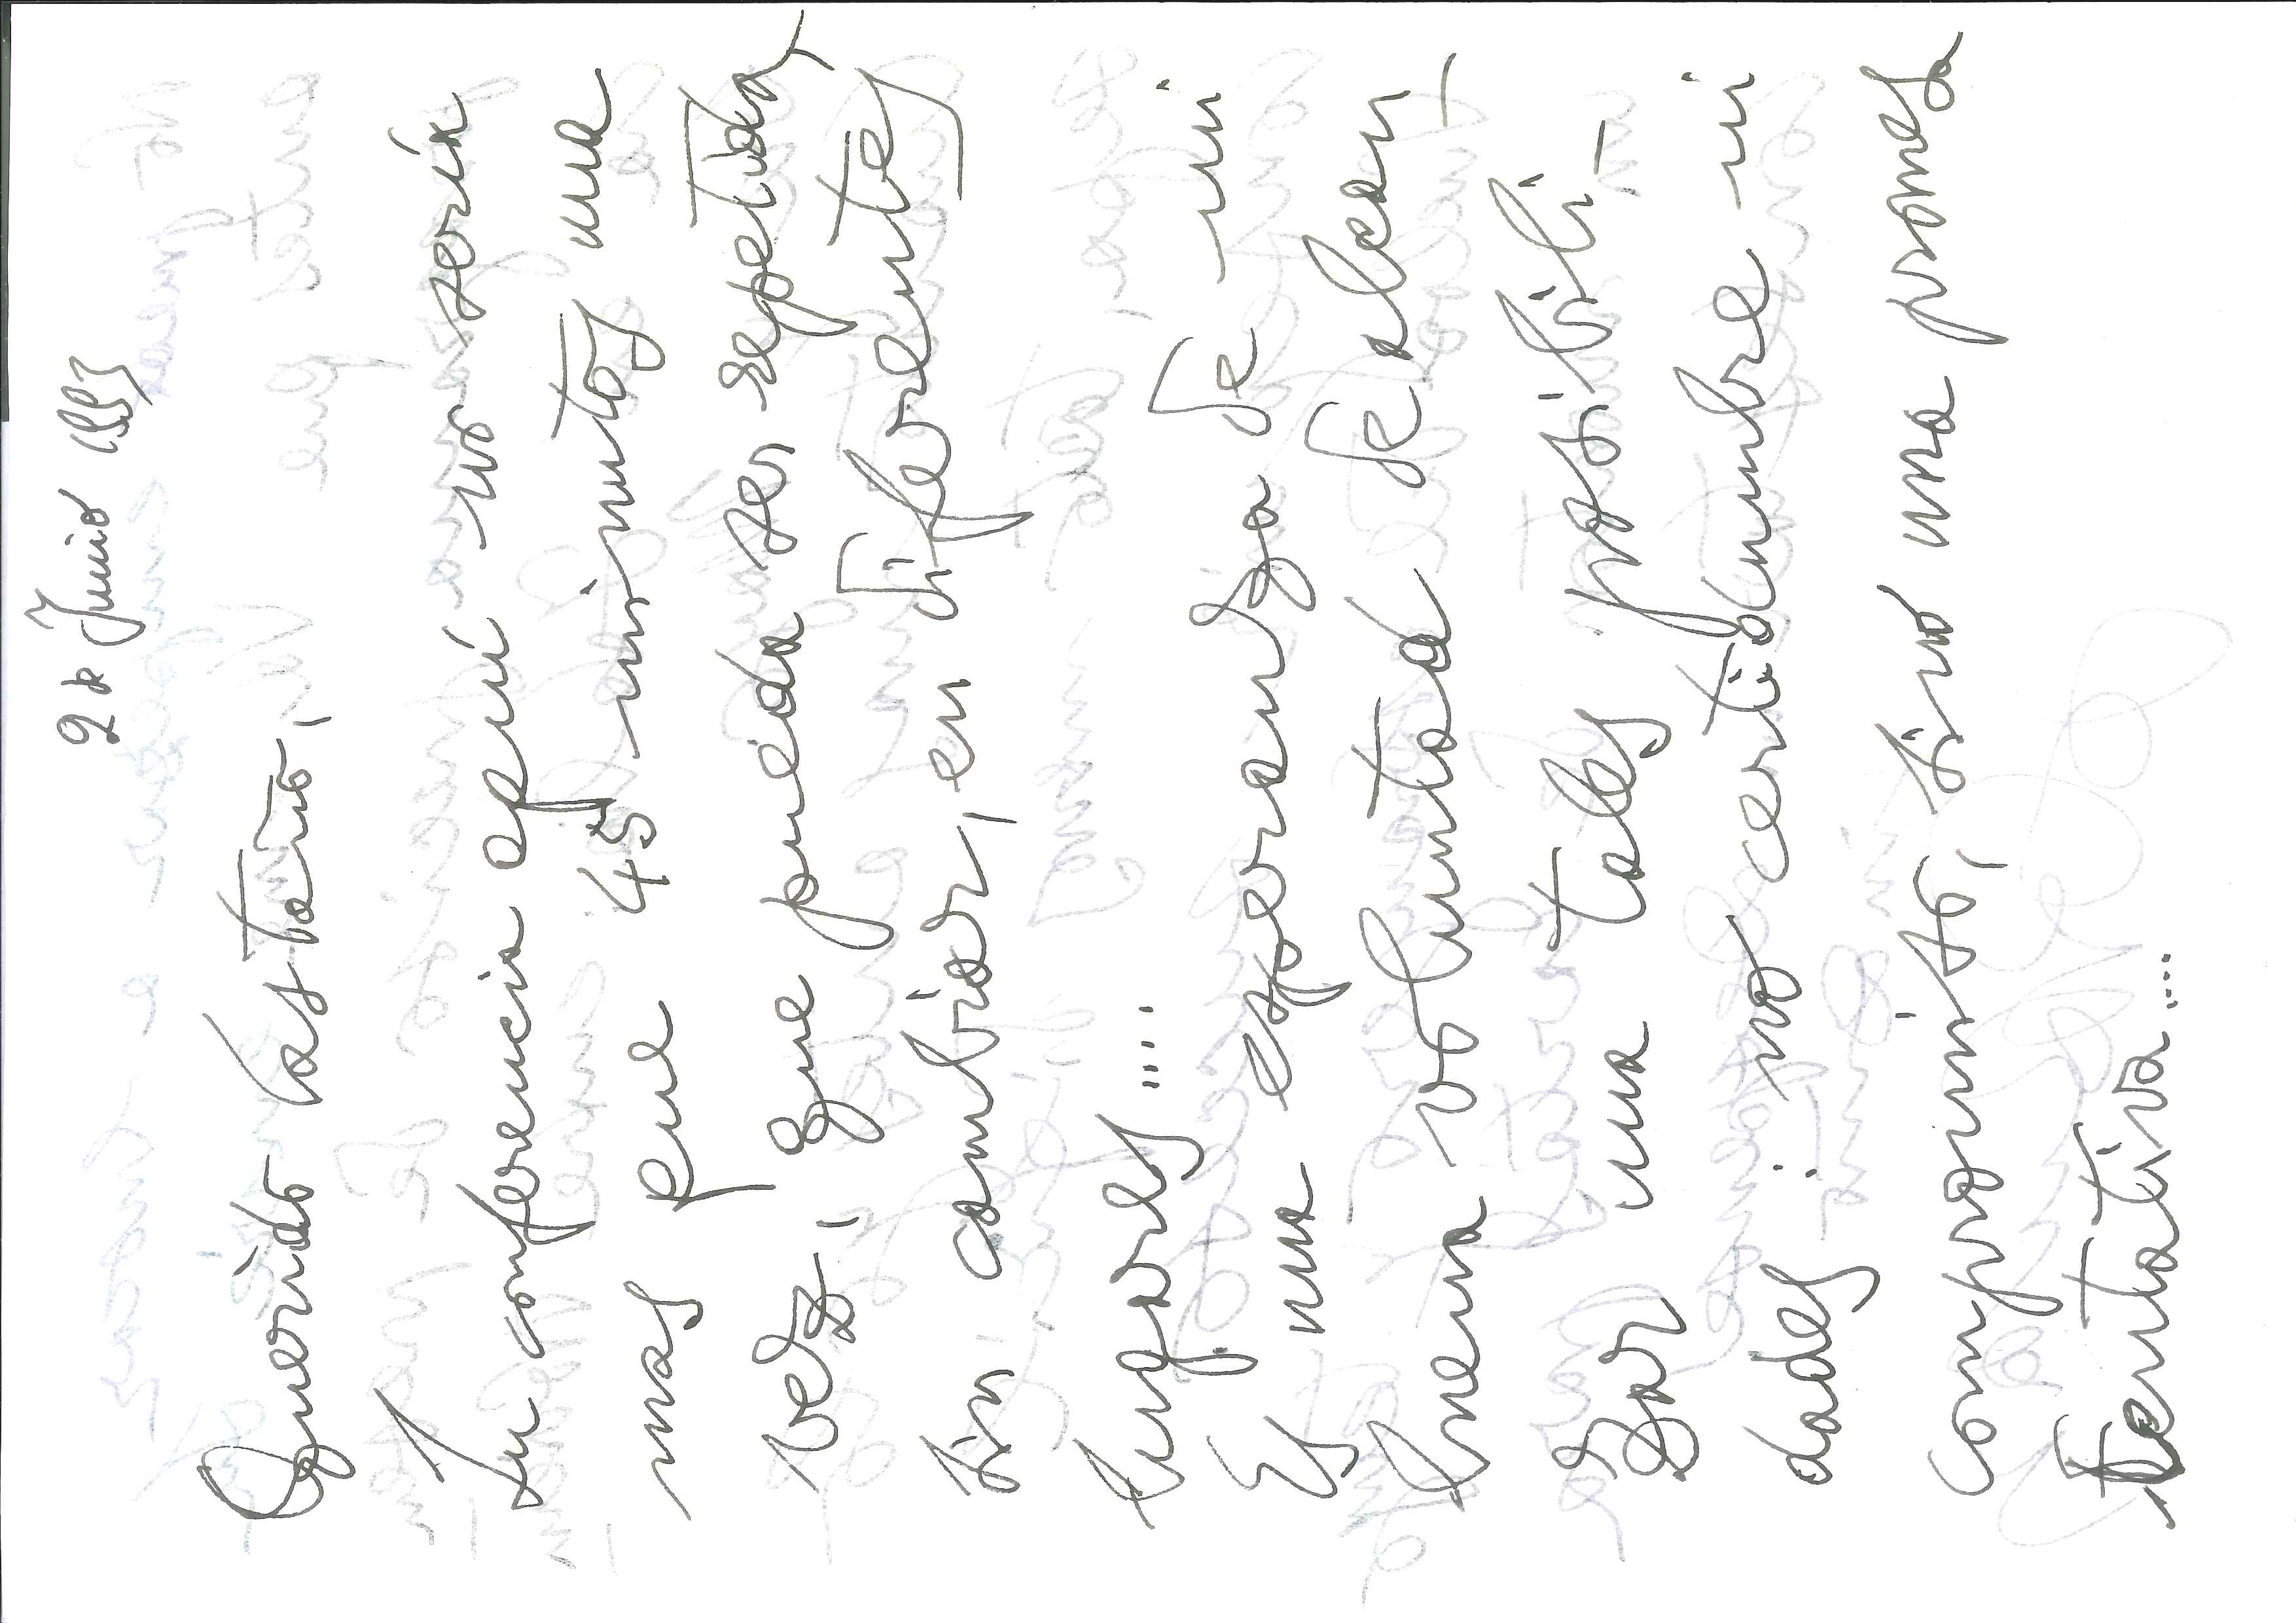 2 de Junio 1993
Querido Castaño,
Su conferencia aquí no sería
mas que 45 minutos una
vez, que pueda ser repetida,
sin cambiar, en diferentes
lugares....
Es una esperanza de mi
buena voluntad de alcan-
zar una tales posibili-
dades: no certidumbre ni
compromiso, sinó una promesa
tentativa....